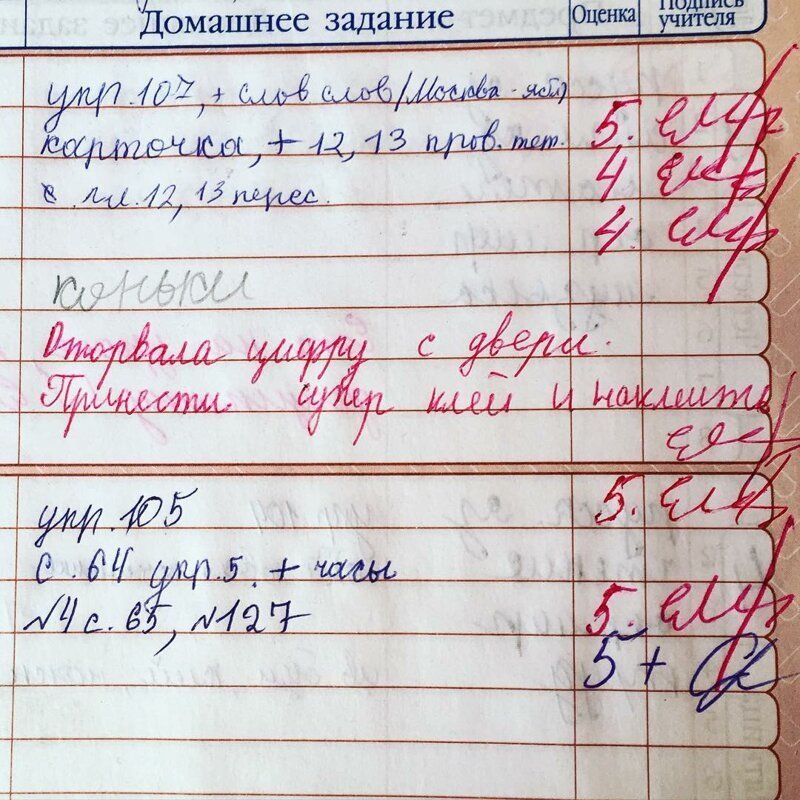 Домашнее задание Оценка Подпись учителя
упр. 107, + слов слов (Москва - ябл)
карточка, + 12, 13 пров. тет. 5.
с. лл. 12, 13 перес. 4
4.
коньки
Оторвала цифру с двери.
Принести супер клей и наклеить
упр. 105 5.
с. 64 упр. 5. + часы
№4 с. 65, №127 5.
5+